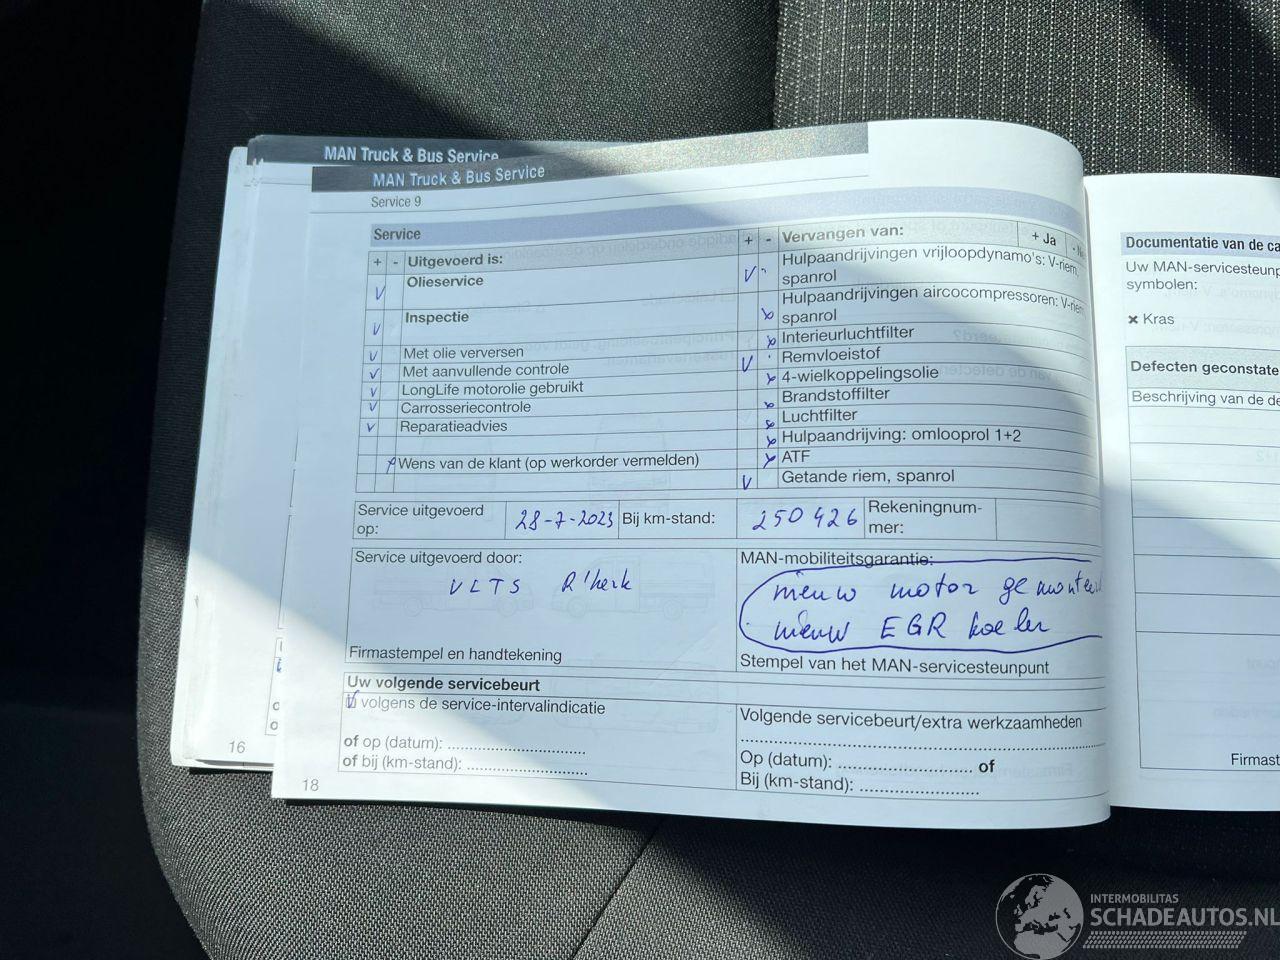 MAN Truck & Bus Service
MAN Truck & Bus Service
Service 9
Service
+ - Uitgevoerd is:
Olieservice
Inspectie
Met olie verversen
Met aanvullende controle
LongLife motorolie gebruikt
Carrosseriecontrole
Reparatieadvies
Wens van de klant (op werkorder vermelden)
+ - Vervangen van: + Ja
Hulpaandrijvingen vrijloopdynamo's: V-riem,
spanrol
Hulpaandrijvingen aircocompressoren: V-riem
spanrol
Interieurluchtfilter
Remvloeistof
4-wielkoppelingsolie
Brandstoffilter
Luchtfilter
Hulpaandrijving: omlooprol 1+2
ATF
Getande riem, spanrol
Service uitgevoerd
op:
28-7-2023
Bij km-stand:
250426
Rekeningnum-
mer:
Service uitgevoerd door:
VLTS R'kerk
Firmastempel en handtekening
MAN-mobiliteitsgarantie:
nieuw motor gemonteerd
nieuw EGR koeler
Stempel van het MAN-servicesteunpunt
Uw volgende servicebeurt
volgens de service-intervalindicatie
of op (datum): ..............................
of bij (km-stand): ..............................
Volgende servicebeurt/extra werkzaamheden
Op (datum): .............................. of
Bij (km-stand): ..............................
16
18
Documentatie van de ca
Uw MAN-servicesteunp
symbolen:
× Kras
Defecten geconstate
Beschrijving van de de
Firmast
INTERMOBILITAS
SCHADEAUTOS.NL